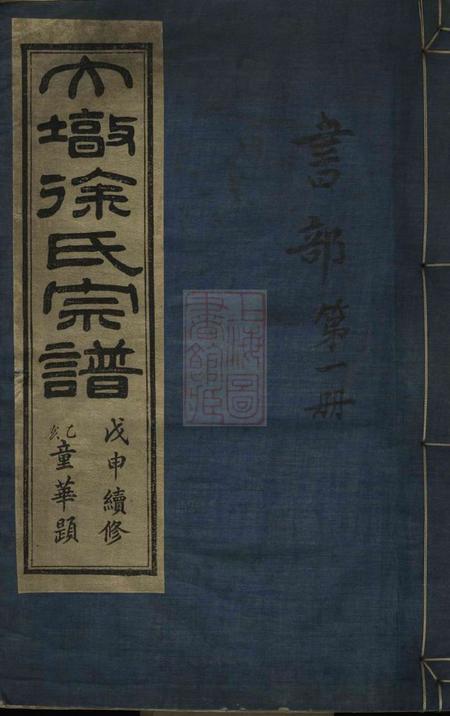 書部第一册
大墩徐氏宗譜
戊申續修
童華題
上海圖
書館藏